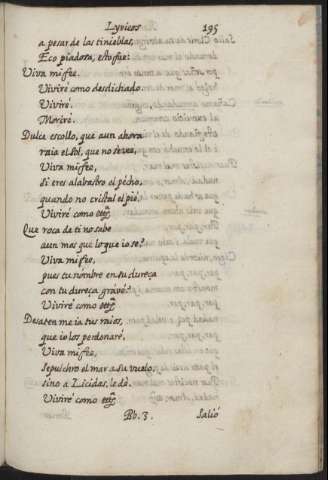 Lyricas 195
a pesar de las tinieblas,
Eco piadora, esto fue:
Viva mi fee.
Viviré como desdichado.
Viviré.
Moriré.
Dulce escollo, que aun ahora
raia el sol, que no se vee,
Viva mi fee,
si eres alabastro el pecho,
quando no cristal el pie,
Viviré como etcª
Que roca de ti no sabe
aun mas que lo que io se?
Viva mi fee,
pues tu nombre en su dureça
con tu dureça gravé?
Viviré como etcª
Desaten me ia tus raios,
que io los perdonaré,
Viva mi fee,
Sepulchro el mar a su vuelo,
sino a Licidas, le dé.
Viviré como etcª
Bb. 3. Salió